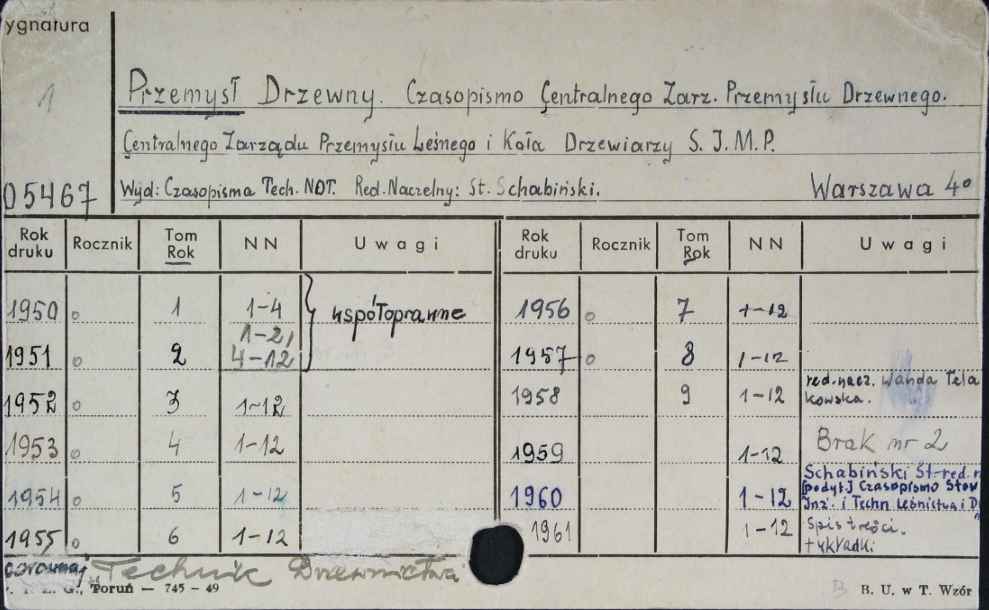 ygnatura
1
Przemysł Drzewny. Czasopismo Centralnego Zarz. Przemysłu Drzewnego.
Centralnego Zarządu Przemysłu Leśnego i Koła Drzewiarzy S. I. M. P.
05467 Wyd: Czasopisma Tech. NOT. Red. Naczelny: St. Schabiński. Warszawa 4°
Rok druku Rocznik Tom Rok NN Uwagi Rok druku Rocznik Tom Rok NN Uwagi
1950 o 1 1-4 współoprawne 1956 o 7 1-12
1951 o 2 1-2, 4-12 1957 o 8 1-12
1952 o 3 1-12 1958 9 1-12 red. nacz. Wanda Tela kowska.
1953 o 4 1-12 1959 1-12 Brak nr 2
1954 o 5 1-12 1960 1-12 Schabiński St-red. n [podyt.] Czasopismo Stow Inż. i Techn Leśnictwa i D
1955 o 6 1-12 1961 1-12 Spis treści. + okładki
Technik Drzewnictwa
Toruń — 745 - 49 B. U. w T. Wzór